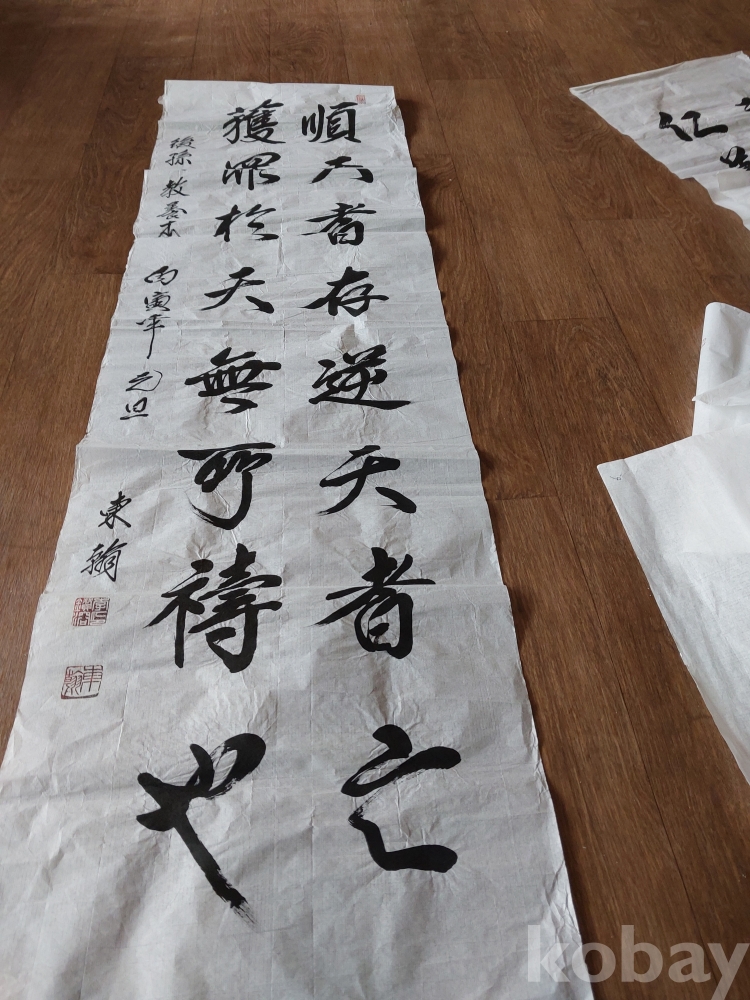 順天者存逆天者亡
獲罪於天無所禱也
後孫教養本
丙寅年 元旦
東翰
kobay